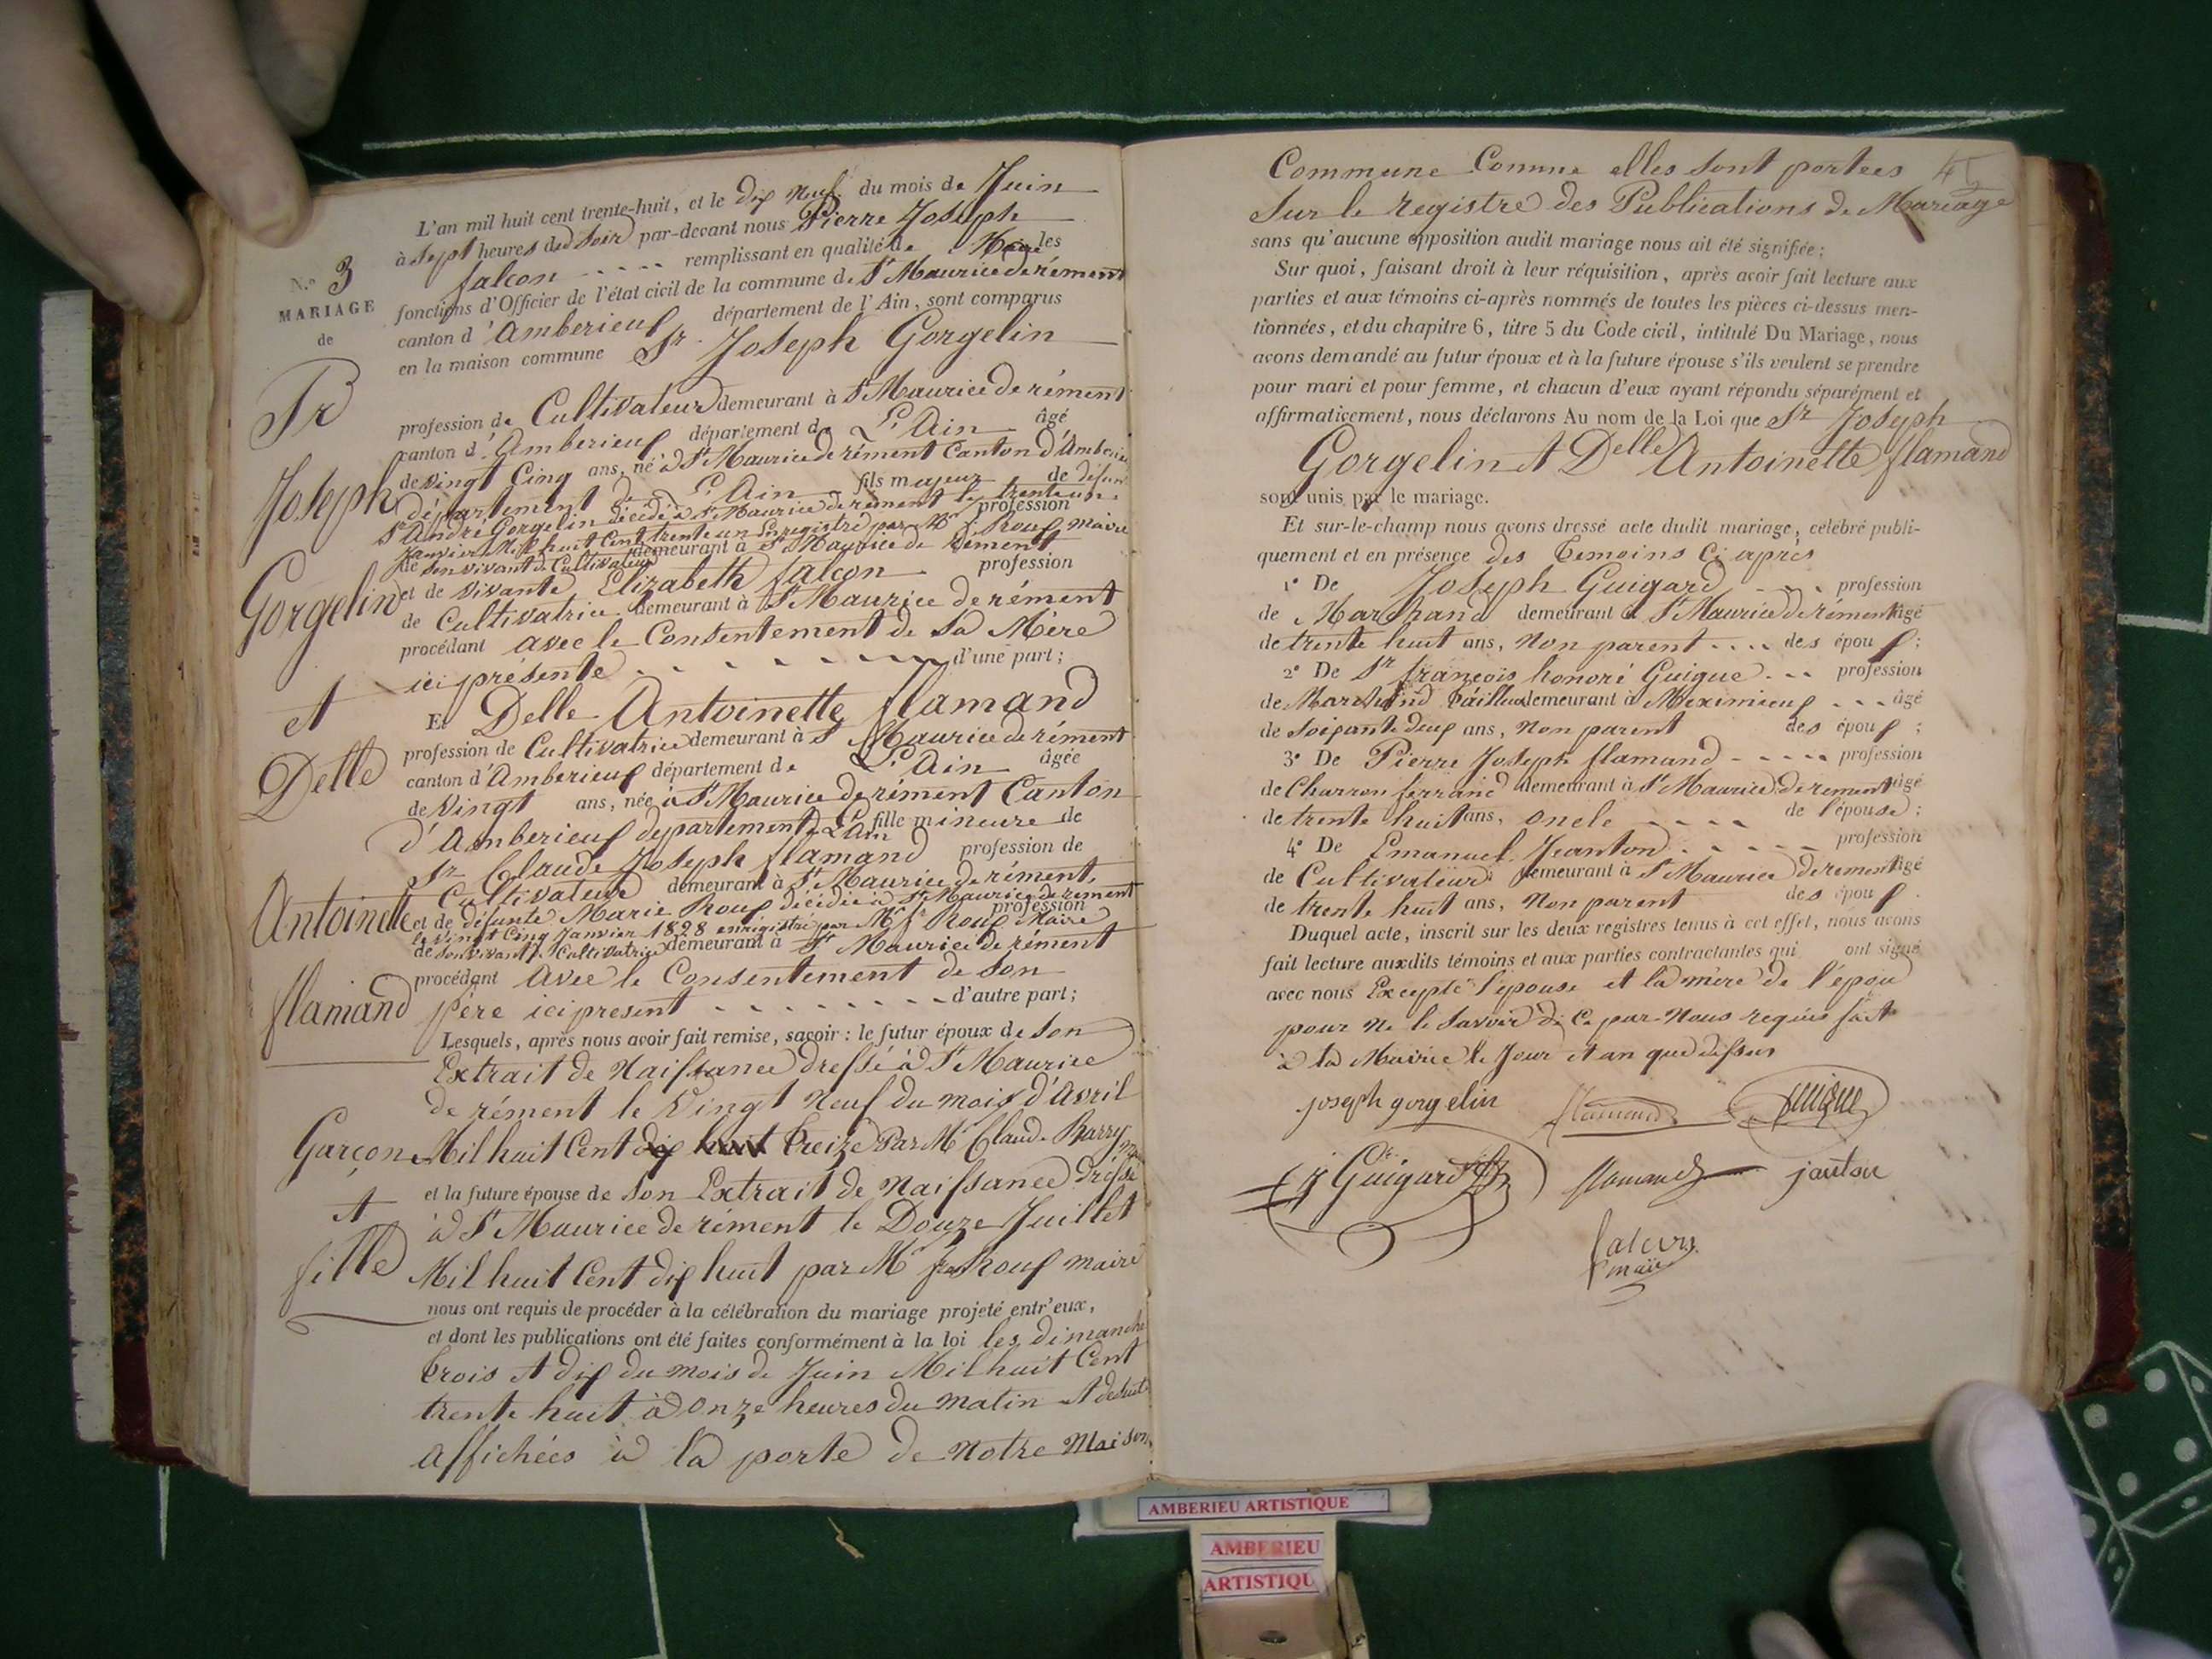 L'an mil huit cent trente-huit, et le dix Neuf du mois de Juin
à Sept heures du Soir par-devant nous Pierre Joseph
falcon - - - - - remplissant en qualité de Maire les
fonctions d'Officier de l'état civil de la commune de St Maurice de rément
canton d'Amberieux département de l'Ain, sont comparus
en la maison commune Sr Joseph Gorgelin
profession de Cultivateur demeurant à St Maurice de rément
canton d'Amberieux département de L'Ain âgé
de vingt Cinq ans, né à St Maurice de rément Canton d'Amberieux
département de L'Ain fils majeur de défun
Sr André Gorgelin décédé à St Maurice de rément le trente un profession
Janvier Mil huit Cent trente un Enregistré par Mr Roux Maire
de son vivant de Cultivateur demeurant à St Maurice de Rément
et de vivante Elizabeth falcon profession
de Cultivatrice demeurant à St Maurice de rément
procédant avec le Consentement de Sa Mère
ici présente - - - - - - - d'une part;
Et Delle Antoinette flamand
profession de Cultivatrice demeurant à St Maurice de rément
canton d'Amberieux département de L'Ain âgée
de Vingt ans, née à St Maurice de rément Canton
d'Amberieux département de L'Ain fille mineure de
Sr Claude Joseph flamand profession de
Cultivateur demeurant à St Maurice de rément
et de défunte Marie Roux décédée à St Maurice de rément profession
le Vingt Cinq Janvier 1828 enregistré par Mr Roux Maire
de son vivant Cultivatrice demeurant à St Maurice de rément
procédant Avec le Consentement de Son
père ici present - - - - - - - - d'autre part;
Lesquels, après nous avoir fait remise, savoir : le futur époux de Son
Extrait de Naissance dressé à St Maurice
de rément le Vingt Neuf du mois d'Avril
Mil huit Cent dix huit treize Par Mr Claude Barry
et la future épouse de Son Extrait de Naissance dressé
à St Maurice de rément le Douze Juillet
Mil huit Cent dix huit par Mr Roux maire
nous ont requis de procéder à la célébration du mariage projeté entr'eux,
et dont les publications ont été faites conformément à la loi les dimanche
trois et dix du mois de Juin Mil huit Cent
trente huit à Onze heures du matin et de suite
affichées à la porte de Notre Maison
N.° 3
MARIAGE
de
Sr
Joseph
Gorgelin
et
Delle
Antoinette
flamand
Garçon
et
fille
45
Commune Comme elles Sont portées
Sur le registre des Publications de Mariage
sans qu'aucune opposition audit mariage nous ait été signifiée;
Sur quoi, faisant droit à leur réquisition, après avoir fait lecture aux
parties et aux témoins ci-après nommés de toutes les pièces ci-dessus men-
tionnées, et du chapitre 6, titre 5 du Code civil, intitulé Du Mariage, nous
avons demandé au futur époux et à la future épouse s'ils veulent se prendre
pour mari et pour femme, et chacun d'eux ayant répondu séparément et
affirmativement, nous déclarons Au nom de la Loi que Sr Joseph
Gorgelin et Delle Antoinette flamand
sont unis par le mariage.
Et sur-le-champ nous avons dressé acte dudit mariage, célébré publi-
quement et en présence des Temoins Ci après
1° De Joseph Guigard - - - profession
de Marchand demeurant à St Maurice de rément âgé
de trente huit ans, Non parent - - - - des époux;
2° De Sr françois honoré Guigue - - - profession
de Marchand Tailleur demeurant à Meximieux - - - âgé
de Soixante deux ans, Non parent des époux;
3° De Pierre Joseph flamand - - - - - profession
de Charron ferrand demeurant à St Maurice de rement âgé
de trente huit ans, Oncle - - - - de l'épouse;
4° De Emanuel Jeanton - - - - - profession
de Cultivateur demeurant à St Maurice de rement âgé
de trente huit ans, Non parent des époux.
Duquel acte, inscrit sur les deux registres tenus à cet effet, nous avons
fait lecture auxdits témoins et aux parties contractantes qui ont signé
avec nous Excepté l'épouse et la mère de l'époux
pour Ne le Savoir de Ce par Nous requis fait
à la Mairie le Jour et an que dessus
joseph gorgelin flamand guigue
j Guigard flamand jantou
falcon
maire
AMBERIEU ARTISTIQUE
AMBERIEU
ARTISTIQU